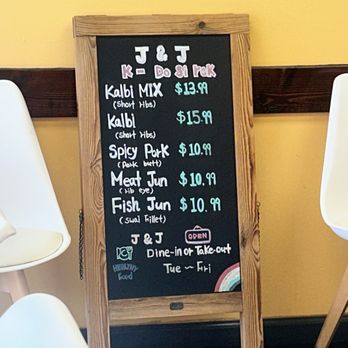 J & J
K - Do Si rak
Kalbi MIX $13.99
(Short ribs)
Kalbi $15.99
(Short ribs)
Spicy Pork $10.99
(Pork butt)
Meat Jun $10.99
(rib eye)
Fish Jun $10.99
(Swai fillet)
J & J OPEN
Dine-in or Take-out
Food
Tue ~ Fri